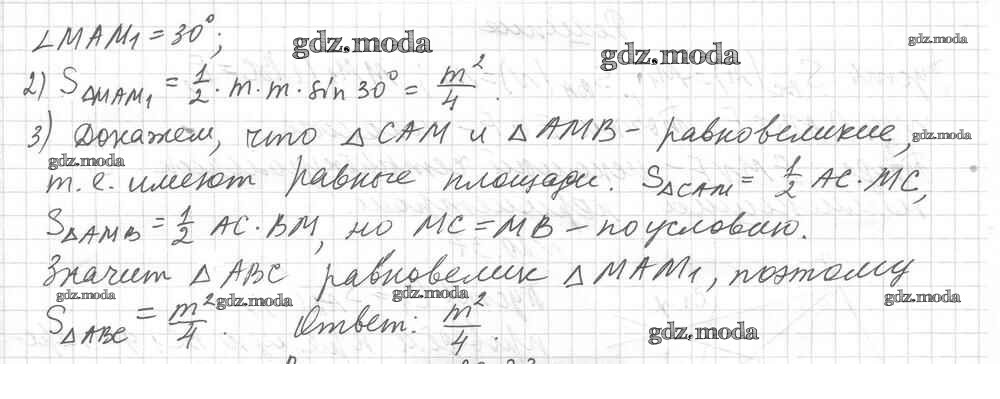 ∠MAM₁ = 30°;
gdz.moda
gdz.moda
gdz.moda
2) S△MAM₁ = 1/2 · m · m · sin 30° = m²/4.
3) Докажем, что △CAM и △AMB – равновеликие,
gdz.moda
gdz.moda
т.е. имеют равные площади. S△CAM = 1/2 AC · MC,
S△AMB = 1/2 AC · BM, но MC = MB – по условию.
Значит △ABC равновелик △MAM₁, поэтому
gdz.moda
gdz.moda
gdz.moda
gdz.moda
S△ABC = m²/4. Ответ: m²/4.
gdz.moda